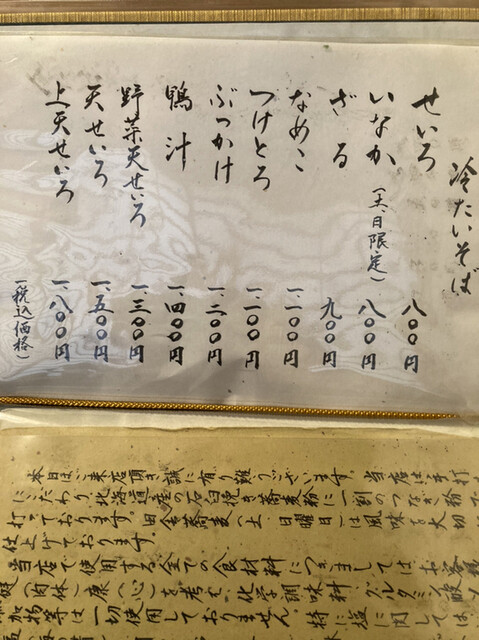 冷たいそば
せいろ 八〇〇円
いなか(土、日限定) 八〇〇円
ざる 九〇〇円
なめこ 一、一〇〇円
つけとろ 一、一〇〇円
ぶっかけ 一、二〇〇円
鴨汁 一、四〇〇円
野菜天せいろ 一、三〇〇円
天せいろ 一、五〇〇円
上天せいろ 一、八〇〇円
(税込価格)
本日はご来店頂き誠に有り難うございます。当店は手打
にこだわり、北海道産の石臼挽き蕎麦粉に一割のつなぎ粉で
打っております。田舎蕎麦(土、日曜日)は風味を大切
仕上げております。
当店で使用する全ての食材料につきましては、お客様
健(肉体)康(心)を考え、化学調味料、グルタミン酸
加物等は一切使用しておりません。特に塩に関しては、